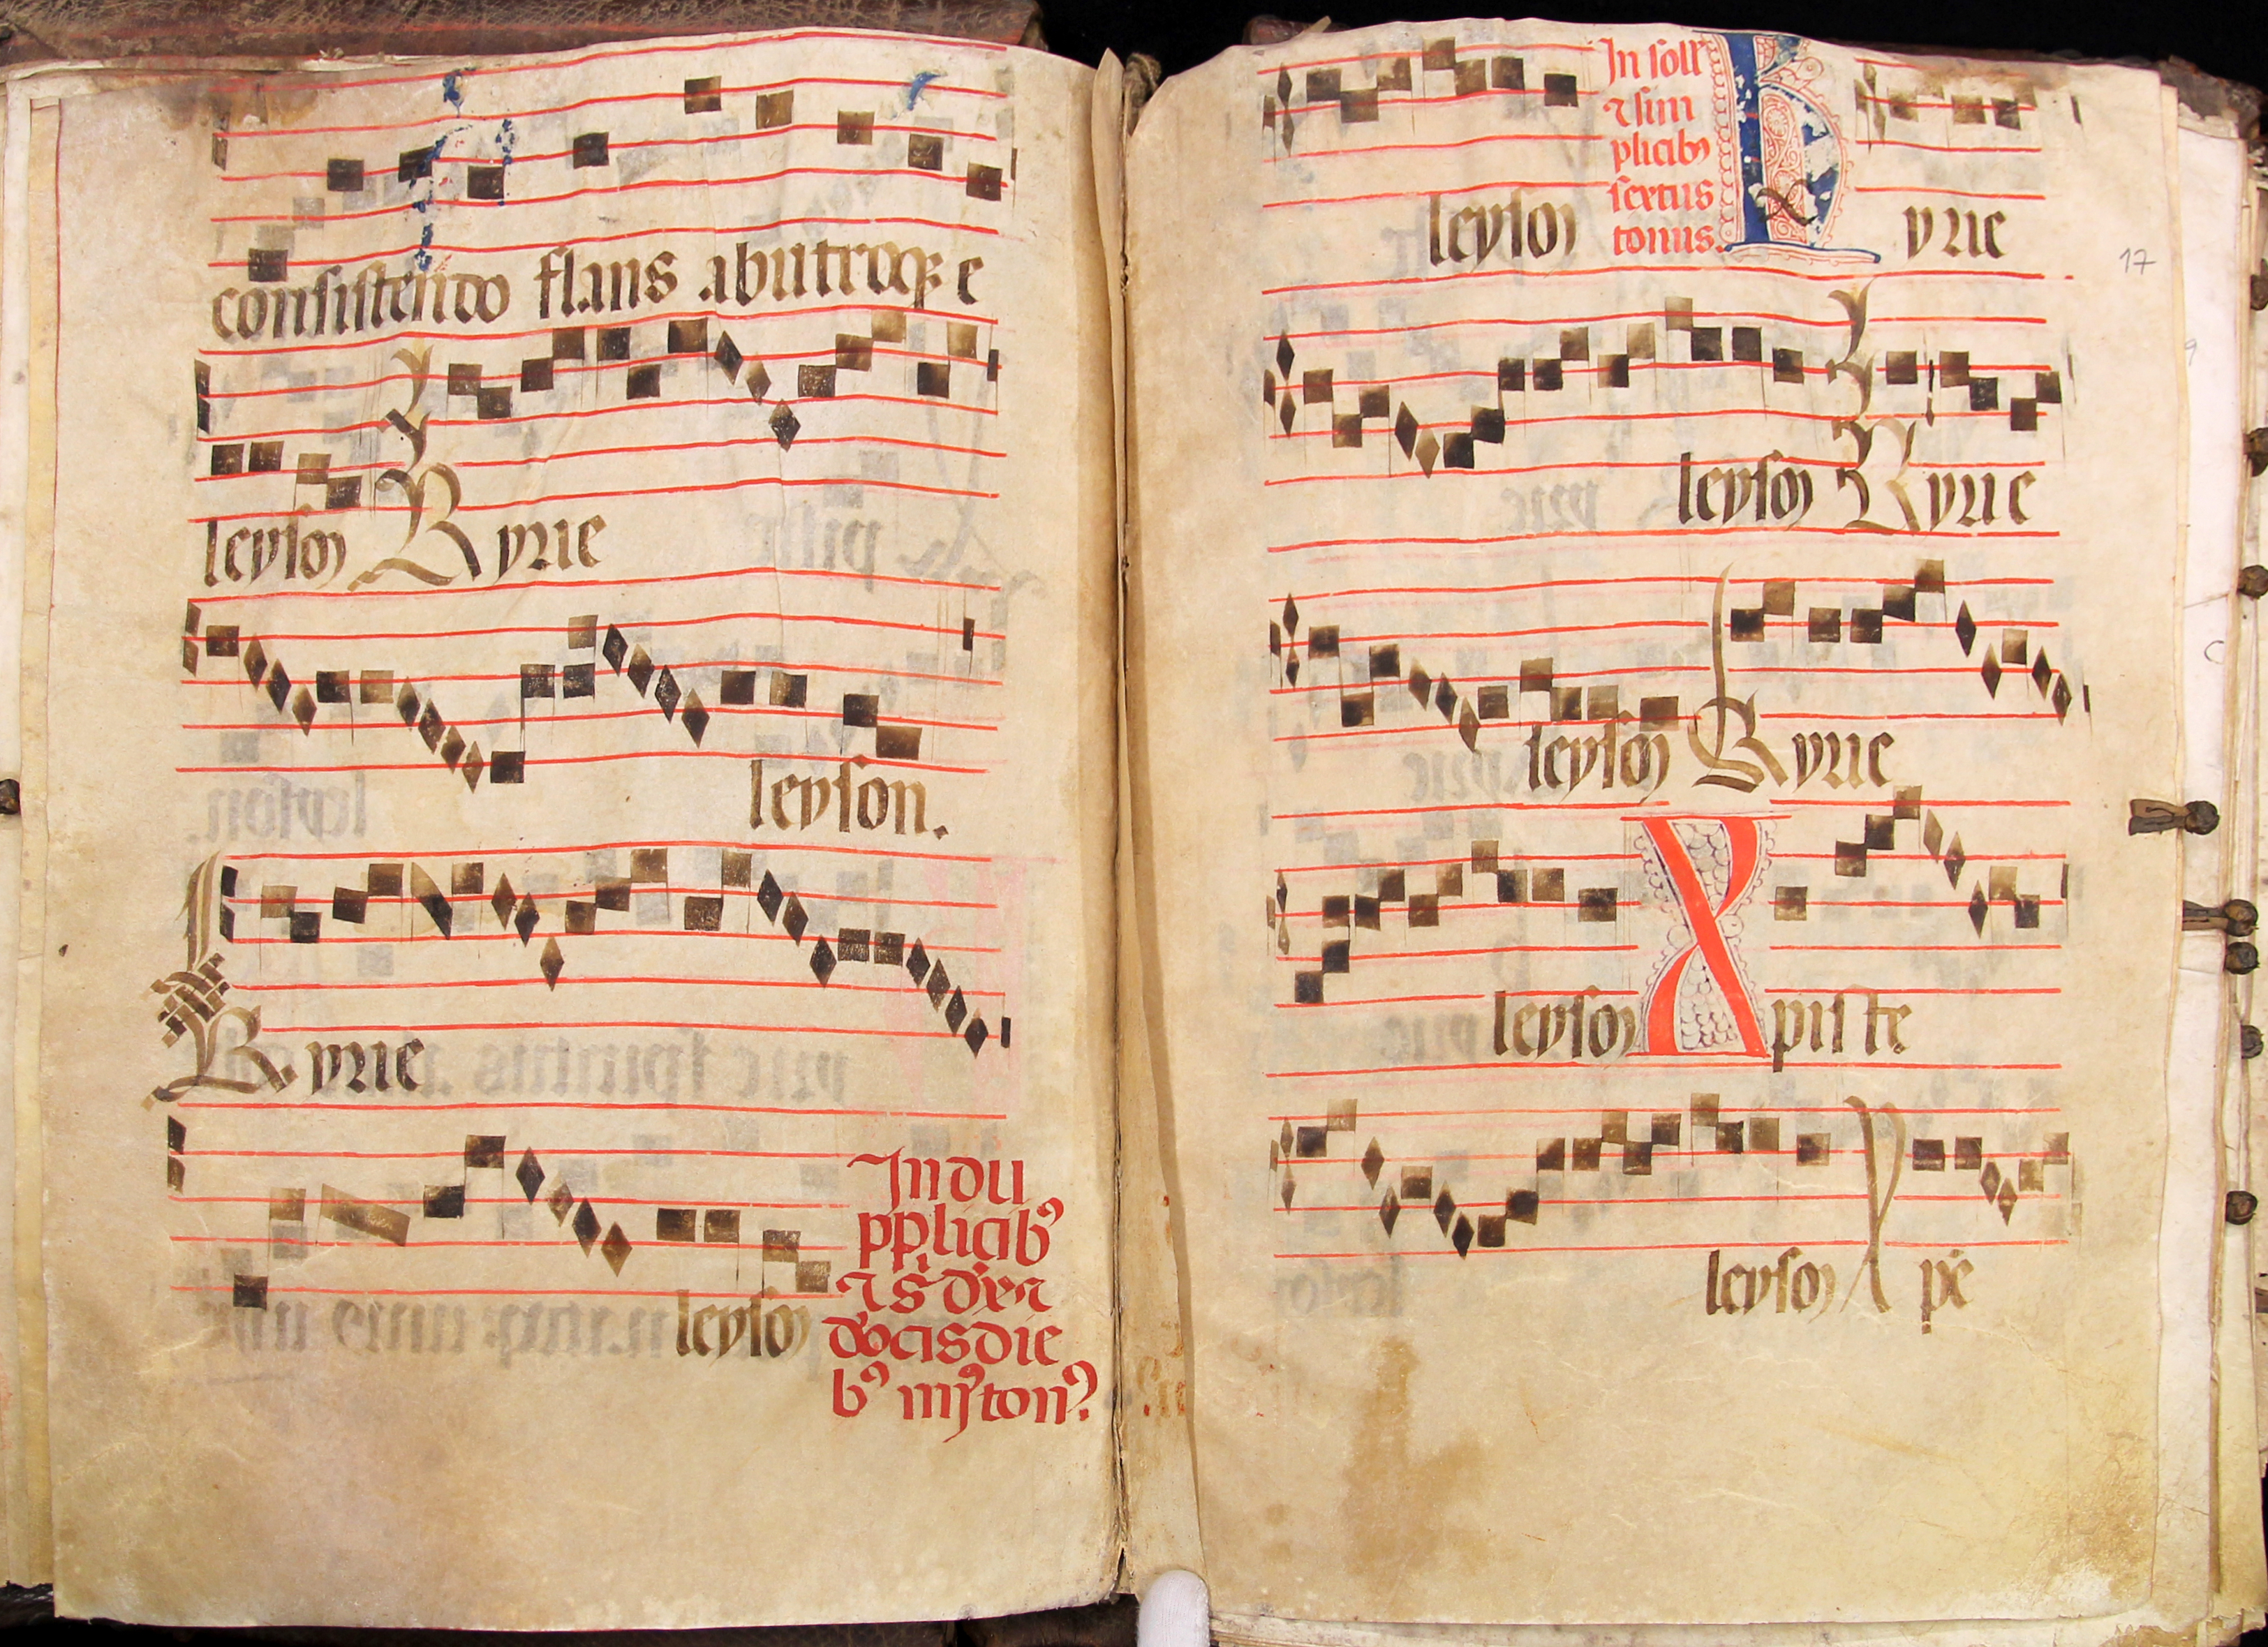 consistendo flans abutroqꝫ e
leyson Kyrie
leyson.
Kyrie
leyson
In du
pplicibꝰ
⁊ s
bꝰ
leyson
In soll
⁊ sim
plicibꝰ
sextus
tonus.
Kyrie
17
leyson Kyrie
leyson Kyrie
leyson Xpiste
leyson Xpe